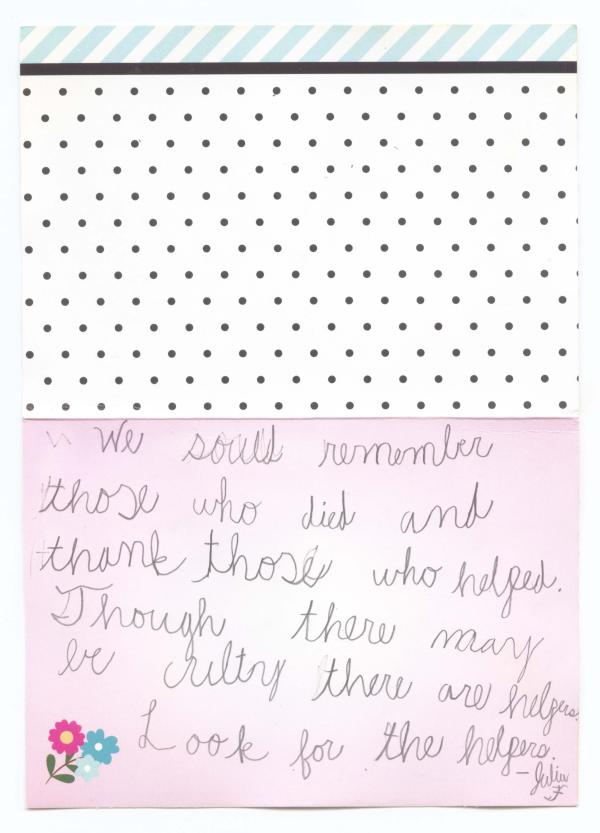 We sould remember
those who died and
thank those who helped.
Though there may
be crulty there are helpers.
Look for the helpers.
- Julia
F